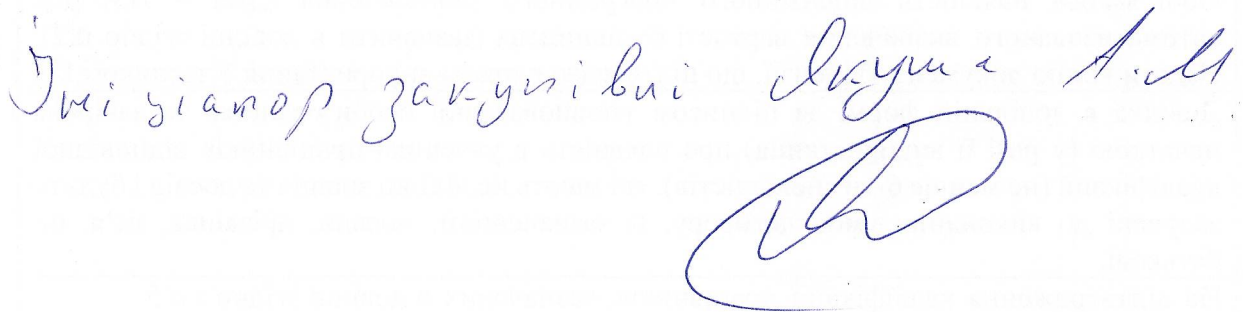 Ініціатор закупівлі Якуша А.М.